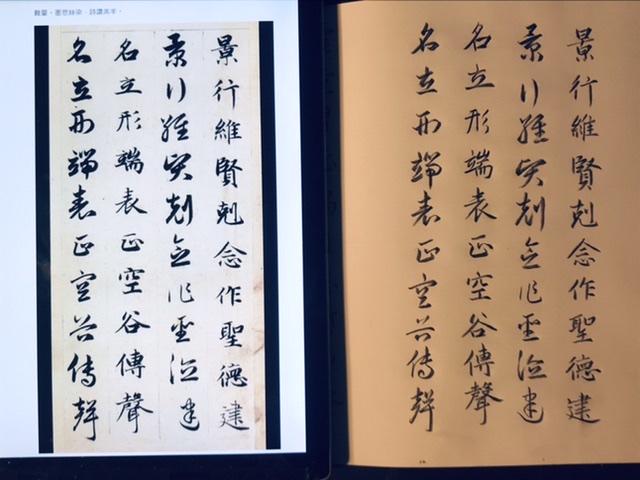 難量。墨悲絲染,詩讚羔羊。
景行維賢剋念作聖德建
景行維賢剋念作聖德建
名立形端表正空谷傳聲
名立形端表正空谷傳聲
景行維賢剋念作聖德建
景行維賢剋念作聖德建
名立形端表正空谷傳聲
名立形端表正空谷傳聲